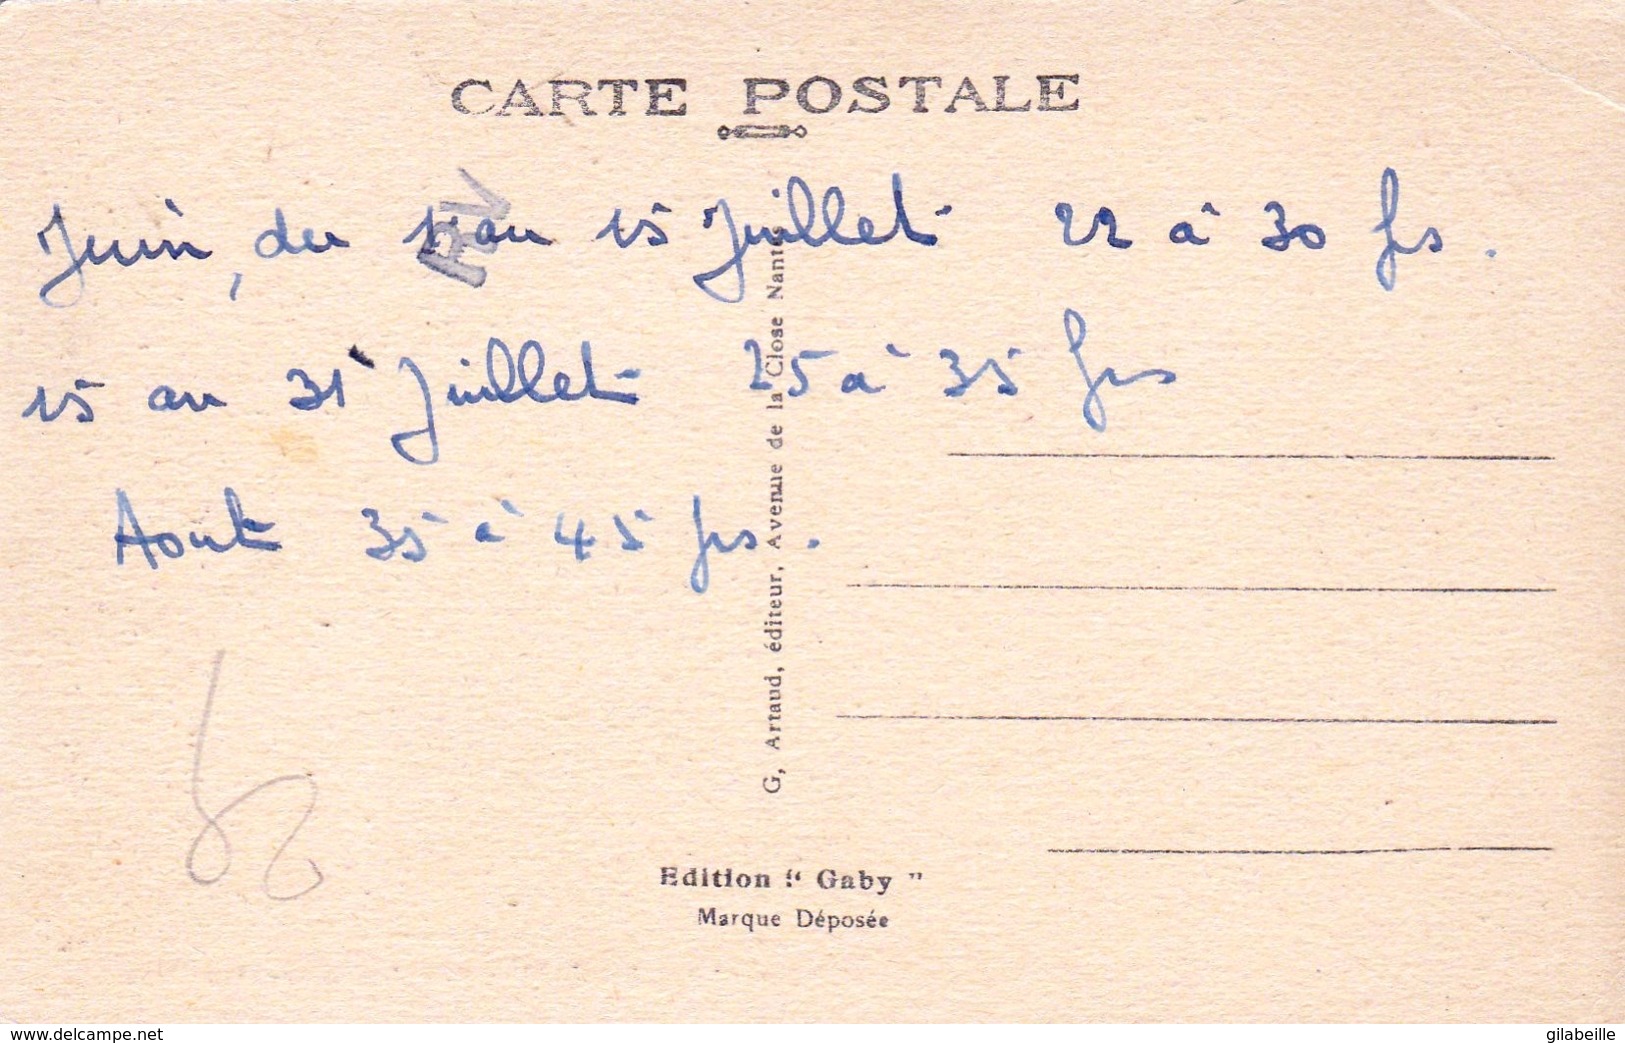 CARTE POSTALE
RV
Juin, du 1 au 15 Juillet 22 à 30 frs.
15 au 31 Juillet 25 à 35 frs
Aout 35 à 45 frs.
G, Artaud, éditeur, Avenue de la Close Nantes
Edition " Gaby "
Marque Déposée
www.delcampe.net
gilabeille